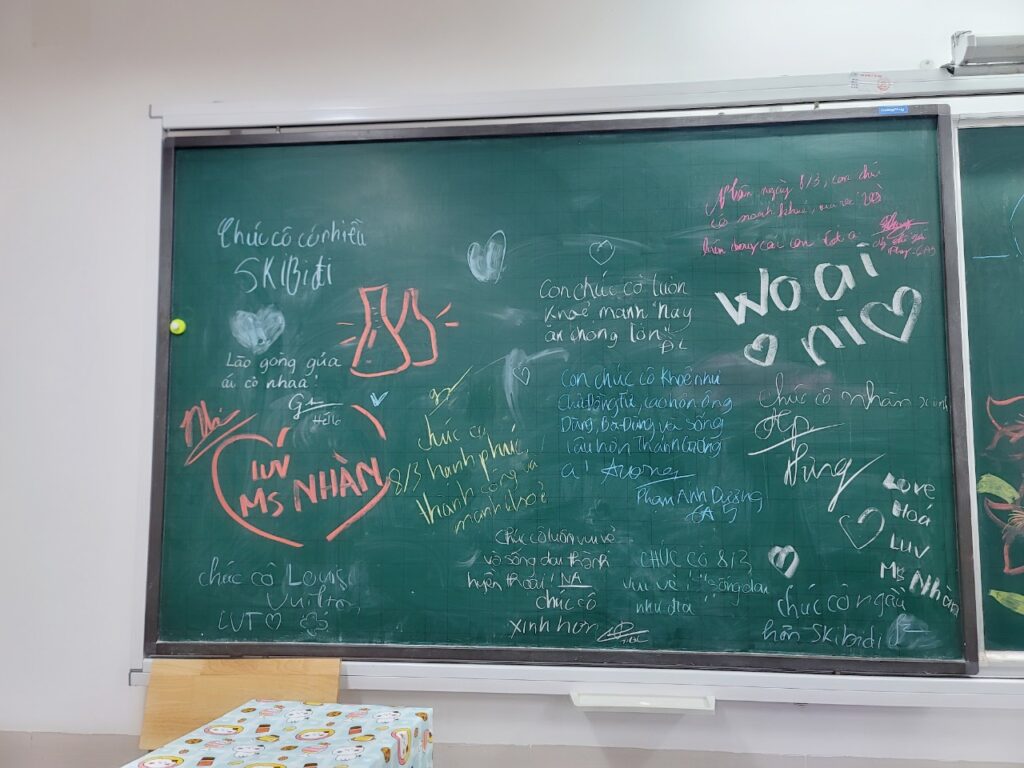 Chúc cô có nhiều
SKIBiđi
Lão gong gúa
ái cô nhaa!
Nhi
LUV
MS NHÀN
chúc cô Louis
Vuitton
LVT
chúc cô
8/3 hạnh phúc,
thành công và
mạnh khoẻ
Con chúc cô luôn
khoẻ mạnh hay
ăn chóng lớn
ĐL
Con chúc cô khoẻ như
cao hơn ông
và sống
lâu hơn
ạ!
Phạm Ánh Dương
6A5
Chúc cô luôn vui vẻ
và sống dai thành
huyền thoại! NA
chúc cô
xinh hơn
CHÚC CÔ 8/3
vui vẻ ! "sống dai
như đỉa"
Nhân ngày 8/3, con chúc
có sức khoẻ, vui vẻ
WO ai
ni
chúc cô nhàn xinh
Hp
Hùng
Love
Hoá
Luv
Ms Nhàn
chúc cô ngầu
hơn Skibidi